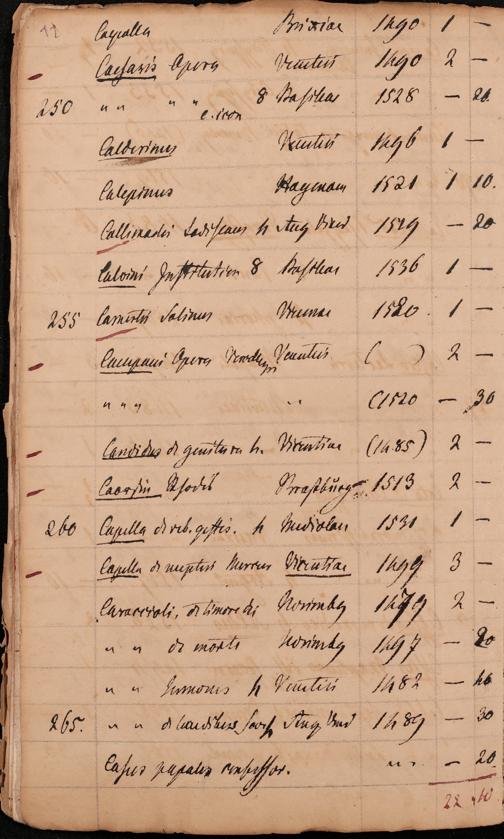 Capella Brixiae 1490 1 —
Caesaris Opera Venetiis 1490 2 —
250 " " " " c. icon 8 Basileae 1528 — 20
Calderinus Venetiis 1496 1 —
Calepinus Hagenau 1521 1 10.
Callimachi h Aug Vind 1519 — 20
Calvini Institution 8 Basileae 1536 1 —
255 Camertis Solinus Viennae 1520. 1 —
Campani Opera Venetiis ( ) 2 —
" " " " (1520 — 30
Candidus de genitura h. Vicentiae (1485) 2 —
Rhodi Straßburg 1513 2 —
260 Capella de reb. gestis. h Mediolan 1531 1 —
Capella de nuptiis Mercur Vicentiae 1499 3 —
Caraccioli, de timore dei Norimbg 1479 2 —
" " de morte Norimbg 1497 — 20
" " Sermones h Venetiis 1482 — 40
265. " " de laudibus Sanct Aug. Vind 1489 — 30
Casus papales confessor. " " — 20
22 40